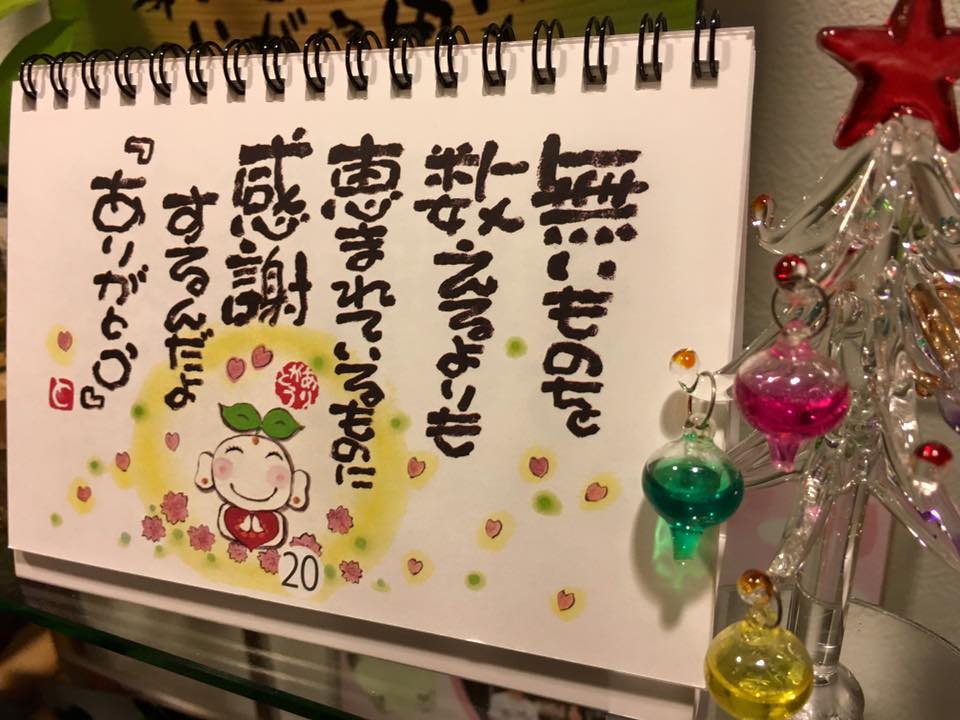 無いものを
数えるよりも
恵まれているものに
感謝
するんだよ
『ありがとう』
20